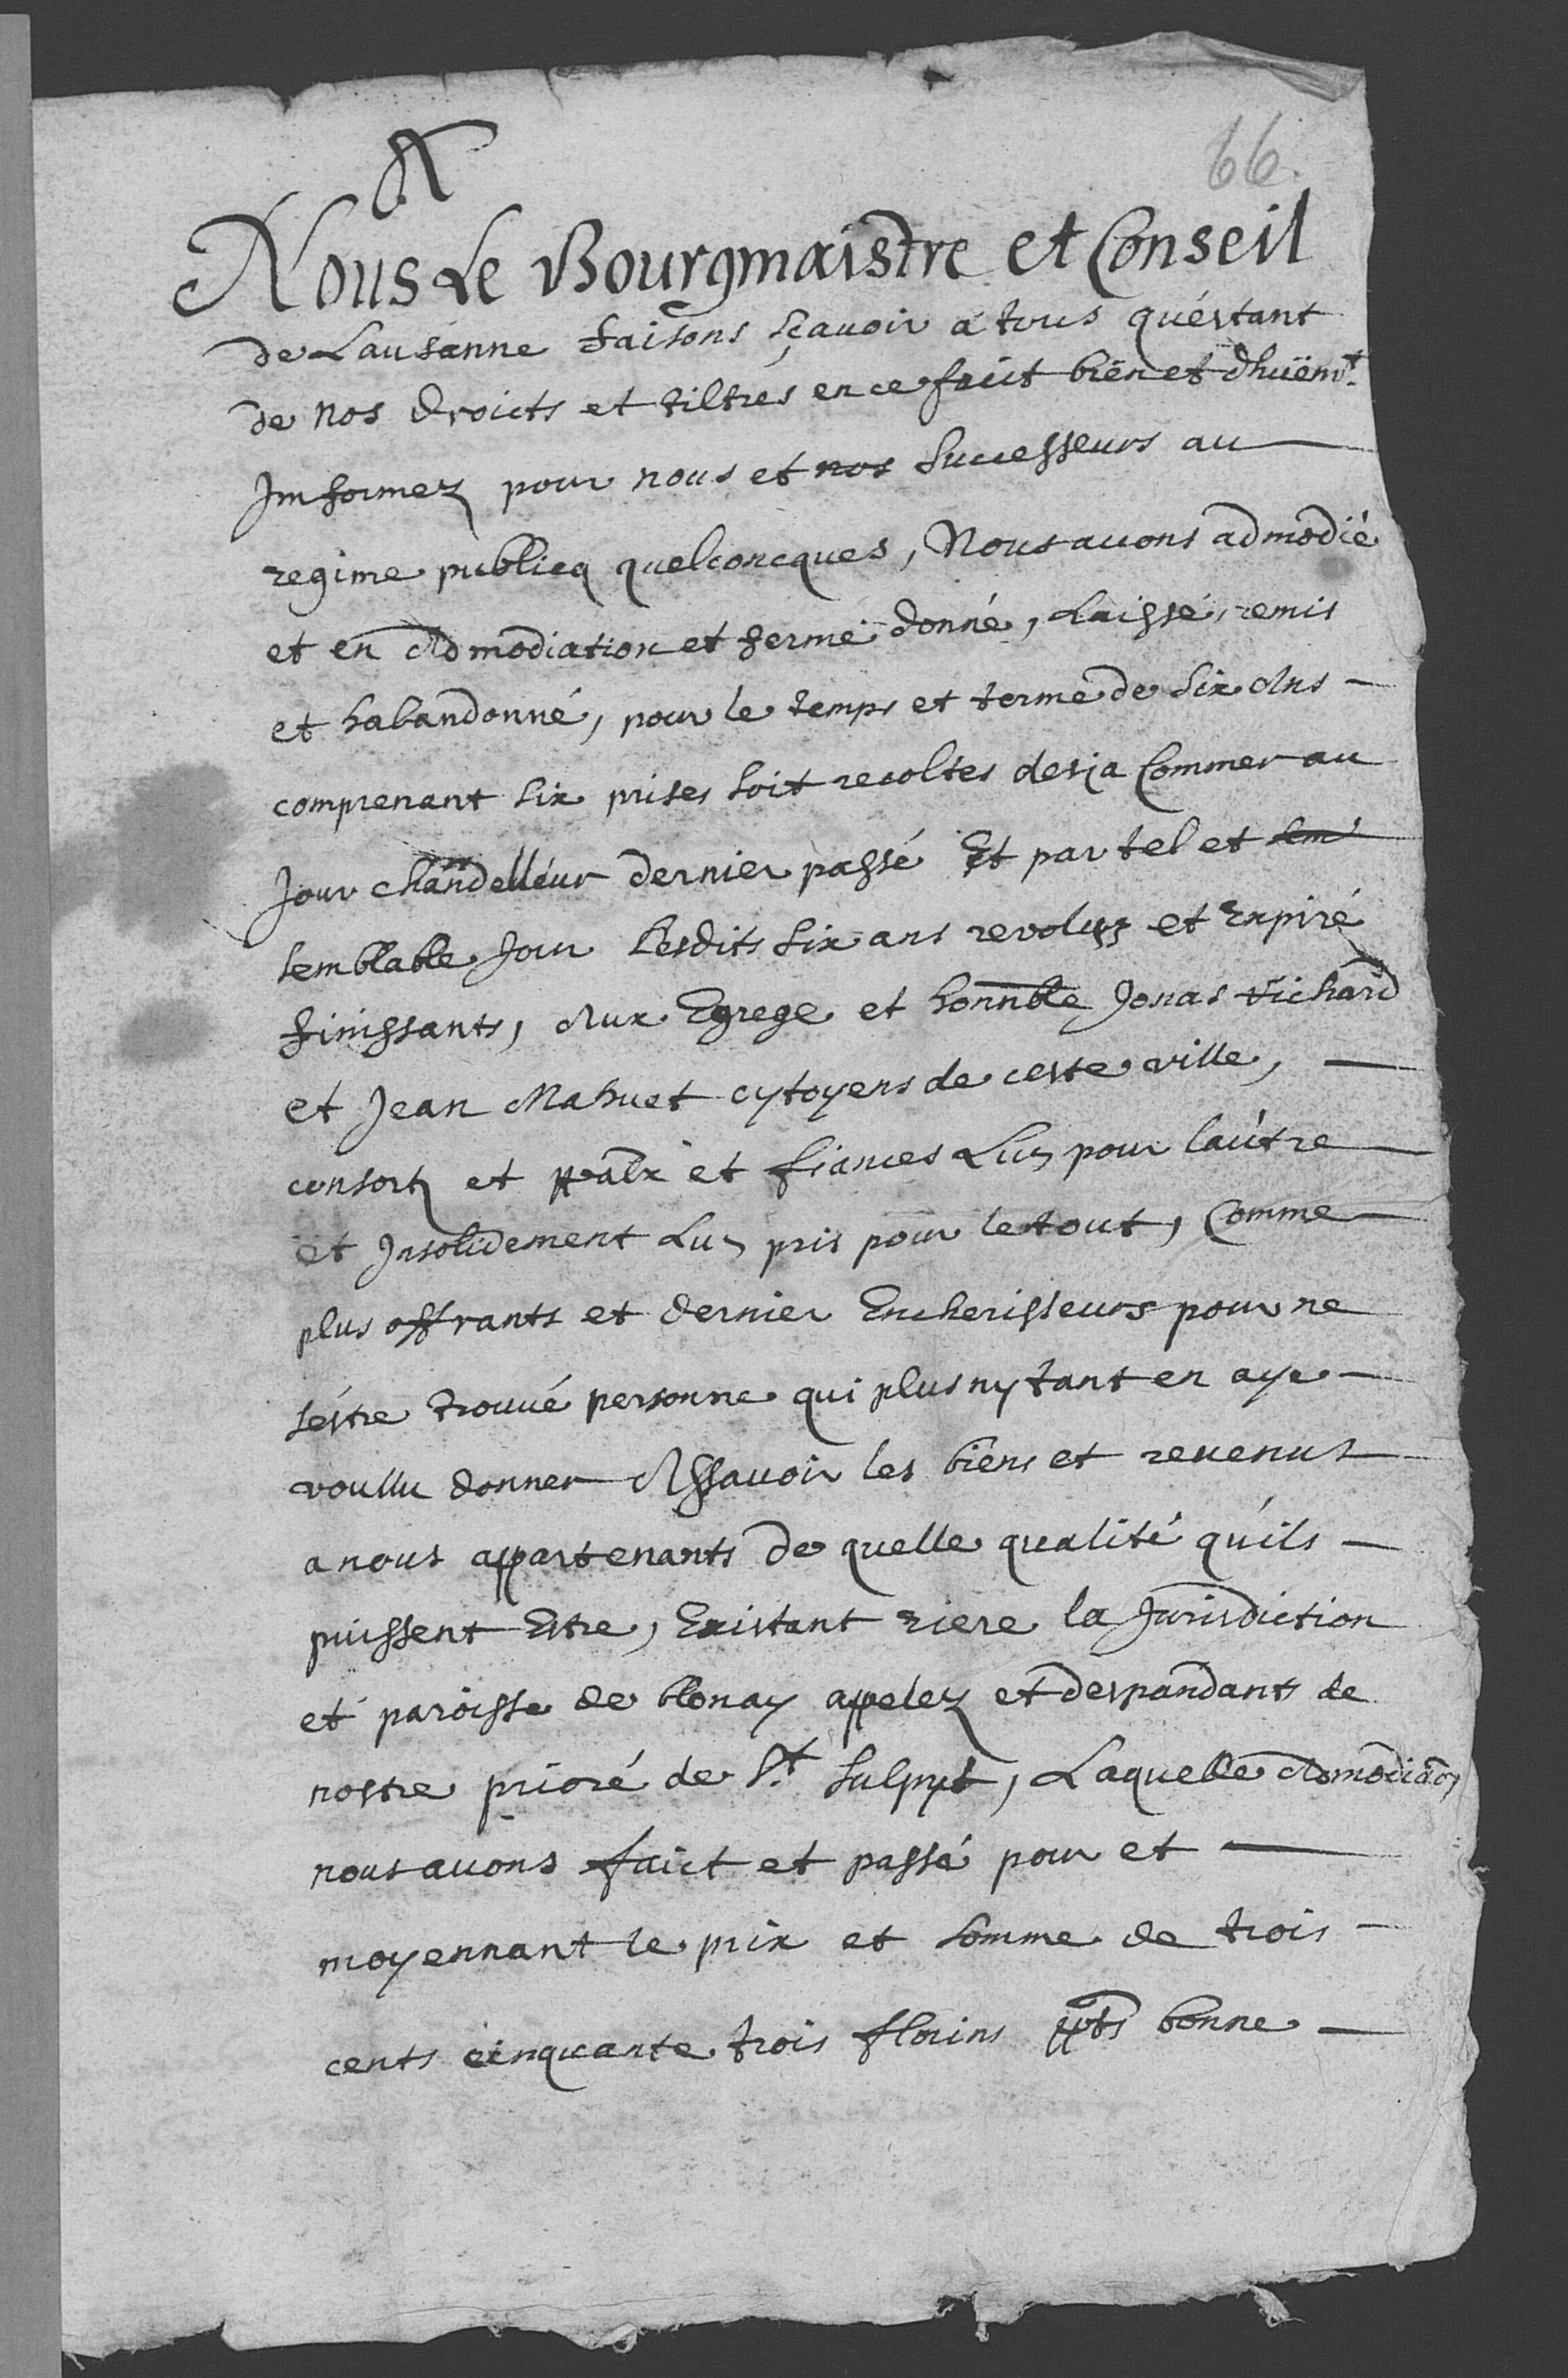 A
66.
Nous Le Bourgmaistre et Conseil
de Lausanne faisons sçavoir a tous qu'estant
de nos droicts et tiltres en ce faict bien et dhuëmt.
Jnformez pour nous et nos successeurs au
regime publicq quelconcques, Nous avons admodié
et en Admodiation et ferme donné, Laissé, remis
et habandonné, pour le temps et terme de six Ans
comprenant six prises soit recoltes desja Commer au
Jour chandelleur dernier passé Et par tel et sem
semblable Jour Lesdits six ans revolus et Expiré
finissants, Aux Egrege et honnble Jonas Vichard
et Jean Mahuet cytoyens de ceste ville,
consortz et ppalx et fiances Lun pour lautre
et Jnsolidement Lun pris pour le tout, Comme
plus offrants et dernier Encherisseurs pour ne
sestre trouué personne qui plus ny tant en aye
voullu donner Assauoir les biens et reuenus
a nous appartenants de quelle qualité quils
puissent Estre, Existant riere la Jurisdiction
et paroisse de blonay appelez et despandants de
nostre prioré de St. Sulpys, Laquelle Admodiaon
nous auons faict et passé pour et
moyennant le prix et somme de trois
cents cinquante trois florins ppts bonne